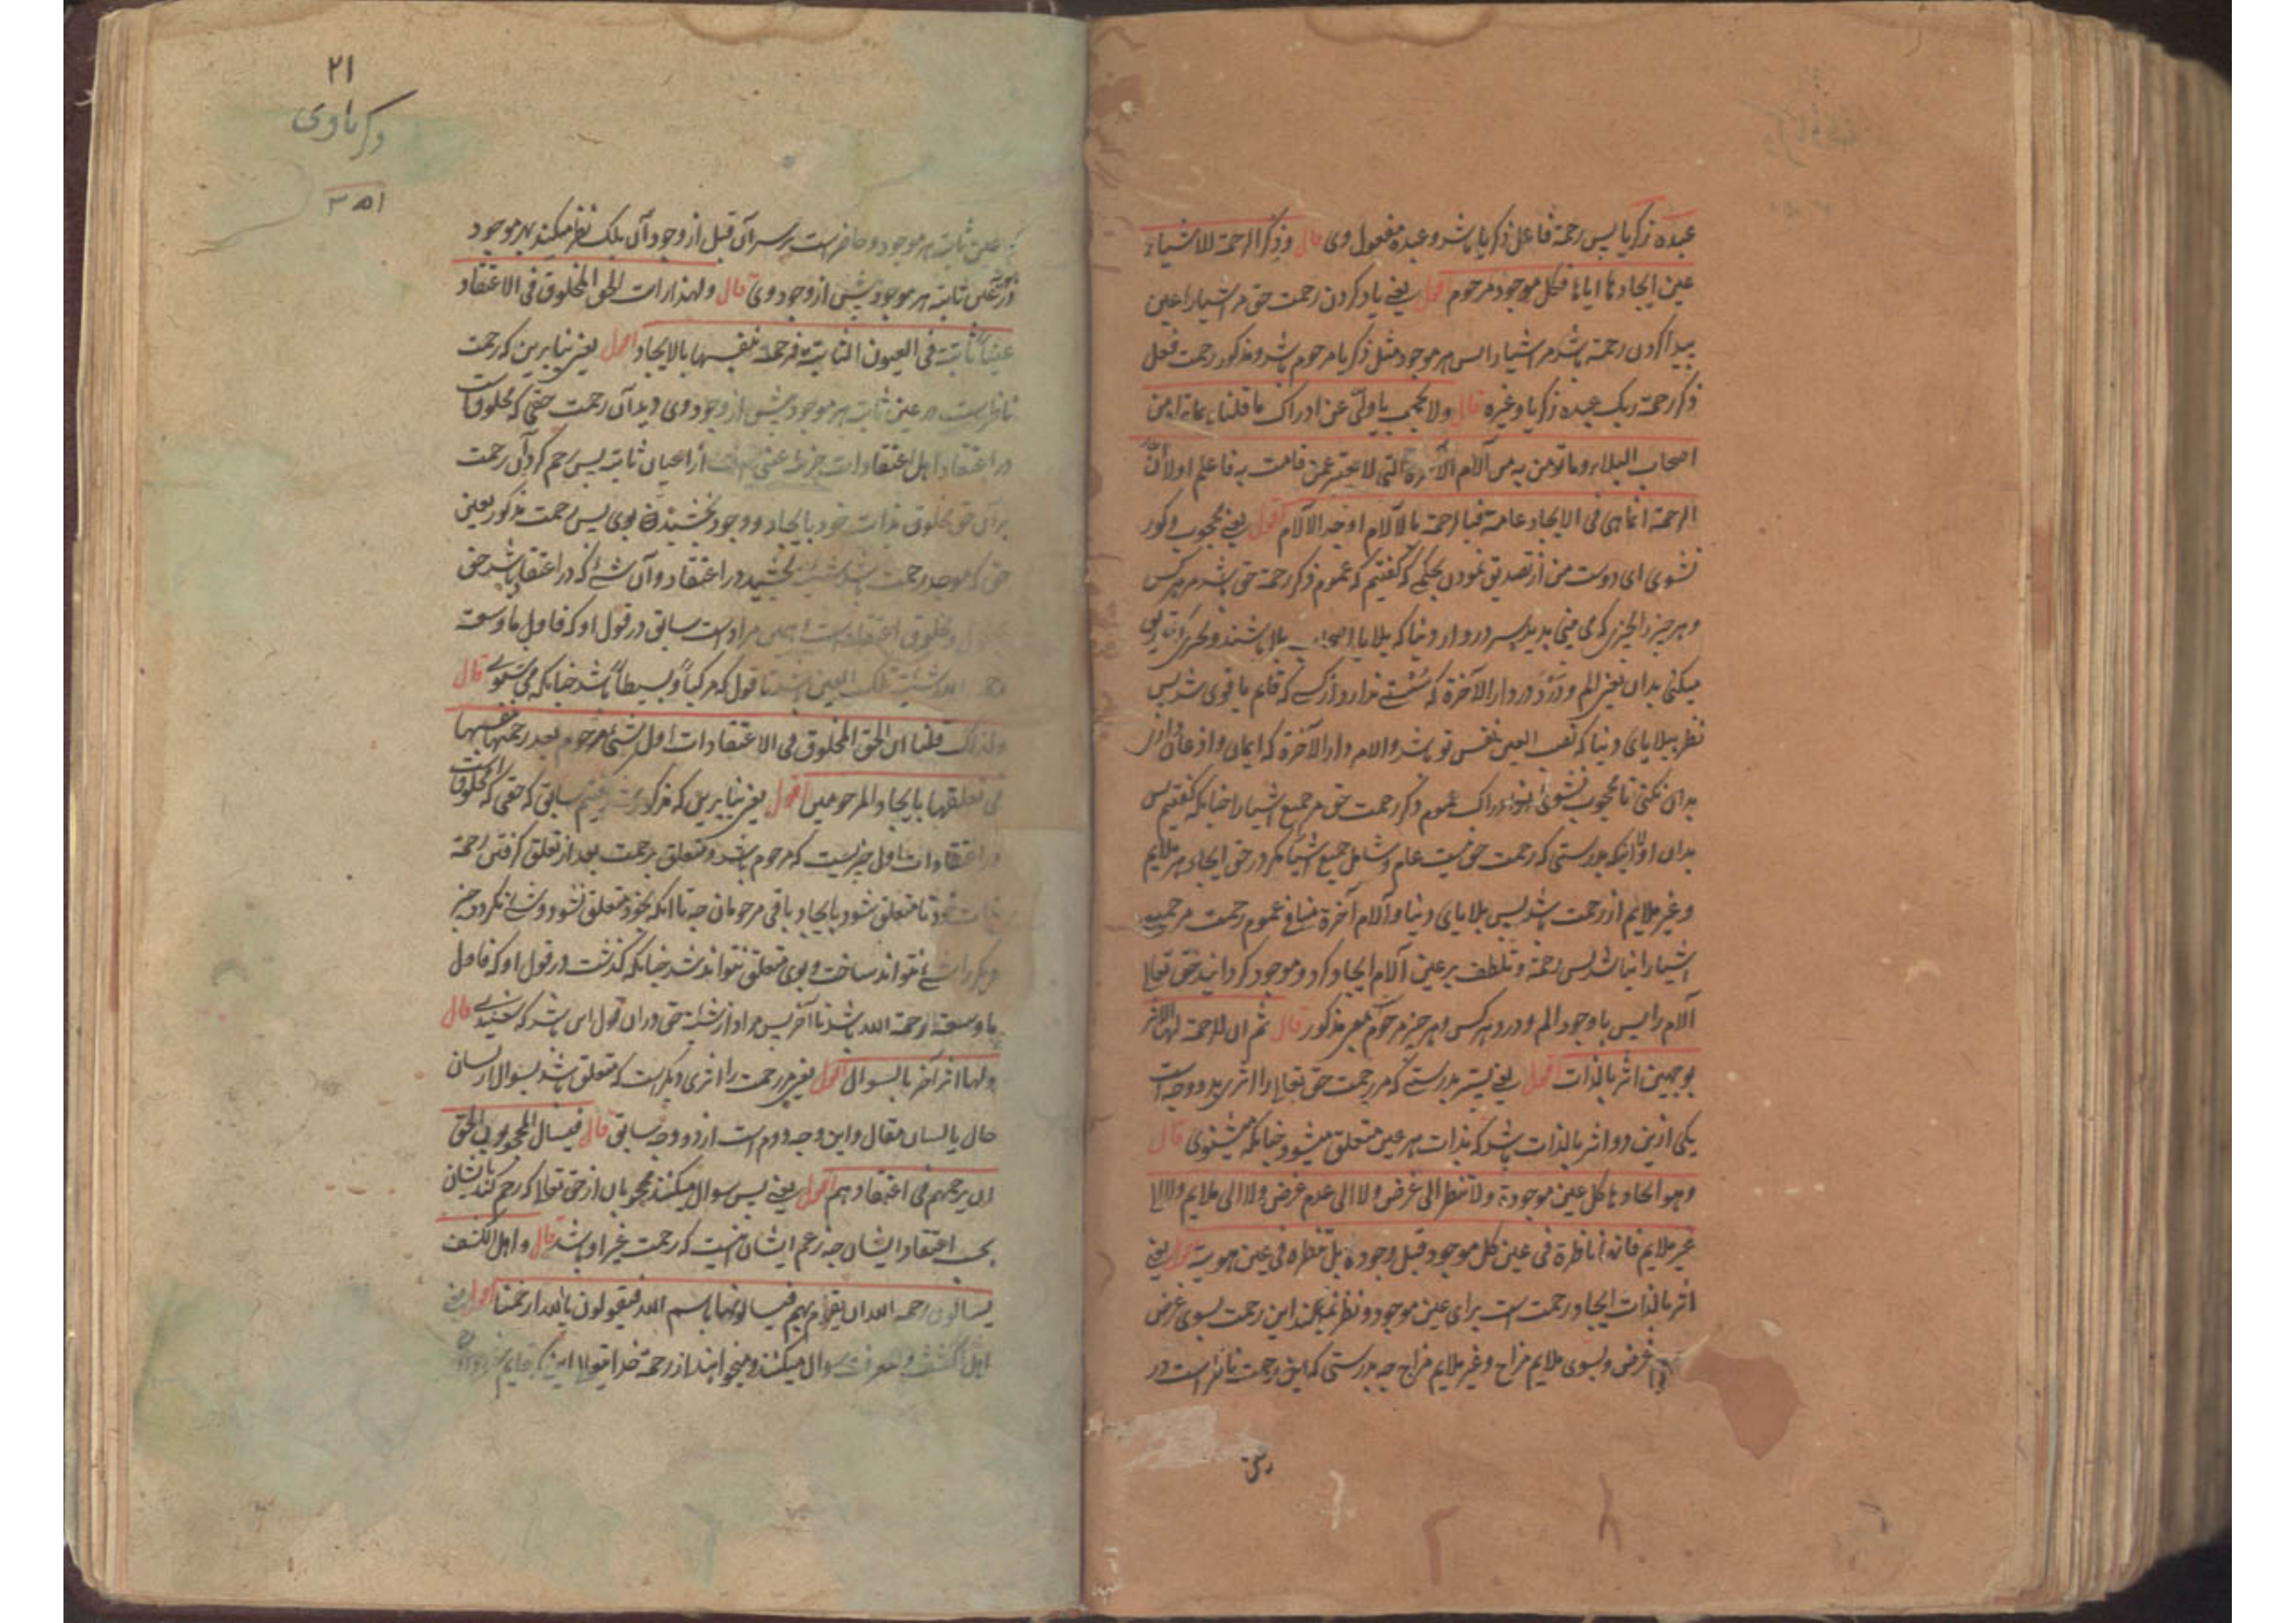 عبده زکریا پس رحمة فاعل ذکر یا باشد و عبده مفعول وی قال و ذکر الرحمة للاشیاء
عین ایجادها ایاها فکل موجود مرحوم اقول یعنی یاد کردن رحمت حق مر اشیا را عین
پیدا کردن رحمة باشد مر اشیا را پس هر موجود مثل زکریا مرحوم باشد و مذکور رحمت فعل
ذکر رحمة ربک عبده زکریا و غیره قال ولا تحجب یا ولی عن ادراک ما قلناه بما تراه من
اصحاب البلاء و ما تؤمن به من آلام الآخرة التی لا تفتر عمن قامت به فاعلم اولا ان
الرحمة انما هی فی الایجاد عامة فبالرحمة بالآلام اوجد الآلام اقول یعنی محجوب و کور
نشوی ای دوست من از تصدیق نمودن بحکمی که گفتیم که عموم ذکر رحمة حق باشد مر هر کس
و هر چیز را بچیزی که می بینی بدیده سر در دار دنیا که بلایا اصحاب بلا باشند و بچیزی که
میکنی بدان یعنی الم و درد در دار الآخرة که سستی ندارد از کسی که قایم با وی شد پس
نظر ببلایای دنیا که نصب العین نفس تو باشد و الام دار الآخرة که ایمان و اذعان داری
بدان نکنی تا محجوب نشوی از ادراک عموم ذکر رحمت حق مر جمیع اشیا را چنانکه گفتیم پس
بدان اولا اینکه بدرستی که رحمت حق نیست عام و شامل جمیع اشیا مگر در حق ایجاد هر ملایم
و غیر ملایم از رحمت باشد پس بلایای دنیا و آلام آخرة منافی عموم رحمت مر جمیع
اشیا را نباشد پس رحمة و تلطف بر عین آلام ایجاد کرد و موجود گردانید حق تعالی
آلام را پس با وجود الم و درد هر کس و هر چیز مرحوم بمعنی مذکور قال ثم ان الرحمة لها الاثر
بوجهین اثر بالذات اقول یعنی پستر بدرستی که مر رحمت حق تعالی را اثری بدو وجه است
یکی ازین دو اثر بالذات باشد که بذات هر عین متعلق میشود چنانکه میشنوی قال
و هو ایجادها کل عین موجودة ولا تنظر الی غرض ولا الی عدم غرض ولا الی ملایم ولا الی
غیر ملایم فانها ناظرة فی عین کل موجود قبل وجوده بل تنظره فی عین ثبوته اقول یعنی
اثر بالذات ایجاد رحمت است برای عین موجود و نظر نمیکند این رحمت بسوی غرض
غرض و بسوی ملایم مزاج و غیر ملایم مزاج چه بدرستی که این رحمت ناظر است در
۲۱
ذکریاوی
۳۵۱
عین ثابته هر موجود و حاضر است بر سر آن قبل از وجود آن بلکه نظر میکند بهر موجود
در عین ثابته هر موجود پیش از وجود وی قال ولهذا رات الحق المخلوق فی الاعتقاد
عینا ثابتة فی العیون الثابتة فرحمته بنفسها بالایجاد اقول یعنی بنابرین که رحمت
ناظر است در عین ثابته هر موجود پیش از وجود وی دید آن رحمت حقی که مخلوقست
در اعتقاد اهل اعتقادات از اعیان ثابته پس رحم کرد آن رحمت
بر آن حق مخلوق بذات خود بایجاد و وجود بخشیدن بوی پس رحمت مذکور بعین
حق که موجد رحمت باشد بخشید در اعتقاد و آن شئ که در اعتقاد باشد حق
و مخلوق اعتقاد است مراد است سابق در قول او که فاول ما وسعته
رحمة الله شیئیة تلک العین باشد تا قول که مرکبا و بسیطا باشد چنانکه می شنوی قال
ولذلک قلنا ان الحق المخلوق فی الاعتقادات اول شئ مرحوم بعد رحمتها بنفسها
فی تعلقها بایجاد المرحومین اقول یعنی بنابرین که سابق که حقی که مخلوقست
در اعتقادات اول چیزیست که مرحوم باشد و متعلق برحمت بعد از تعلق گرفتن رحمة
بذات خود تا متعلق شود بایجاد باقی مرحومان چه تا آنکه بخود متعلق نشود و شئ نکرد چیز
دیگر را شئ نتواند ساخت و بوی متعلق نتواند شد چنانکه گذشت در قول او که فاول
ما وسعته رحمة الله باشد تا آخر پس مراد از شیئیة حق در آن قول این باشد که شنیدی قال
ولها اثر آخر بالسوال اقول یعنی مر رحمت را اثری دیگر است که متعلق باشد بسوال از لسان
حال یا لسان مقال و این وجه دوم است از دو وجه سابق قال فیسال المحجوبون الحق
ان یرحمهم فی اعتقادهم اقول یعنی پس سوال میکنند محجوبان از حق تعالی که رحم کند بایشان
بحسب اعتقاد ایشان چه زعم ایشان اینست که رحمت غیر او باشد قال و اهل الکشف
یسالون رحمة الله ان تقوم بهم فیسالونها باسم الله فیقولون یا الله ارحمنا اقول یعنی
اهل کشف و معرفت سوال میکنند و میخواهند از رحمة خدا تعالی این که قایم